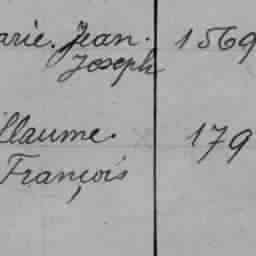 arie. Jean. 1569
Joseph
llaume. 179
François